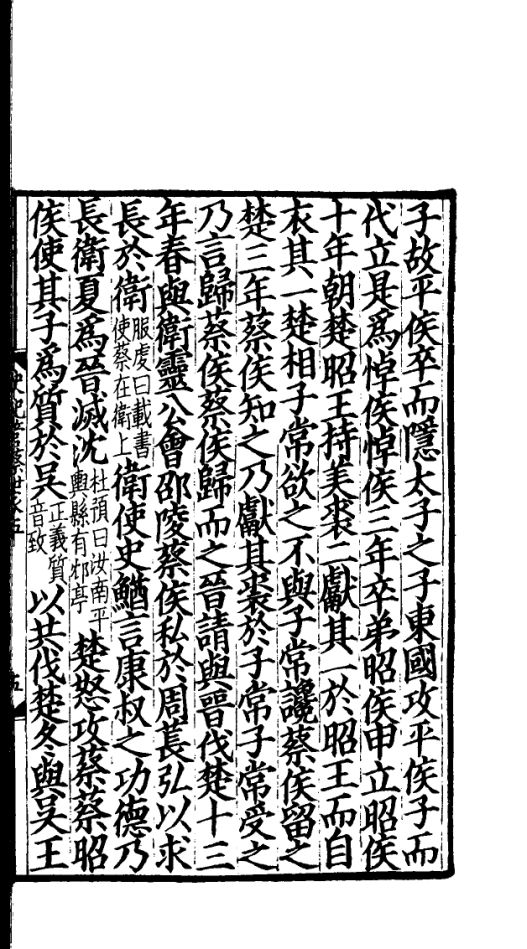 子故平侯卒而隱太子之子東國攻平侯子而
代立是爲悼侯悼侯三年卒弟昭侯申立昭侯
十年朝楚昭王持美裘二獻其一於昭王而自
衣其一楚相子常欲之不與子常讒蔡侯留之
楚三年蔡侯知之乃獻其裘於子常子常受之
乃言歸蔡侯蔡侯歸而之晉請與晉伐楚十三
年春與衛靈公會邵陵蔡侯私於周萇弘以求
長於衛服虔曰載書使蔡在衛上衛使史鰌言康叔之功德乃
長衛夏爲晉滅沈杜預曰汝南平輿縣有邥亭楚怒攻蔡蔡昭
侯使其子爲質於吳正義質音致以共伐楚冬與吳王